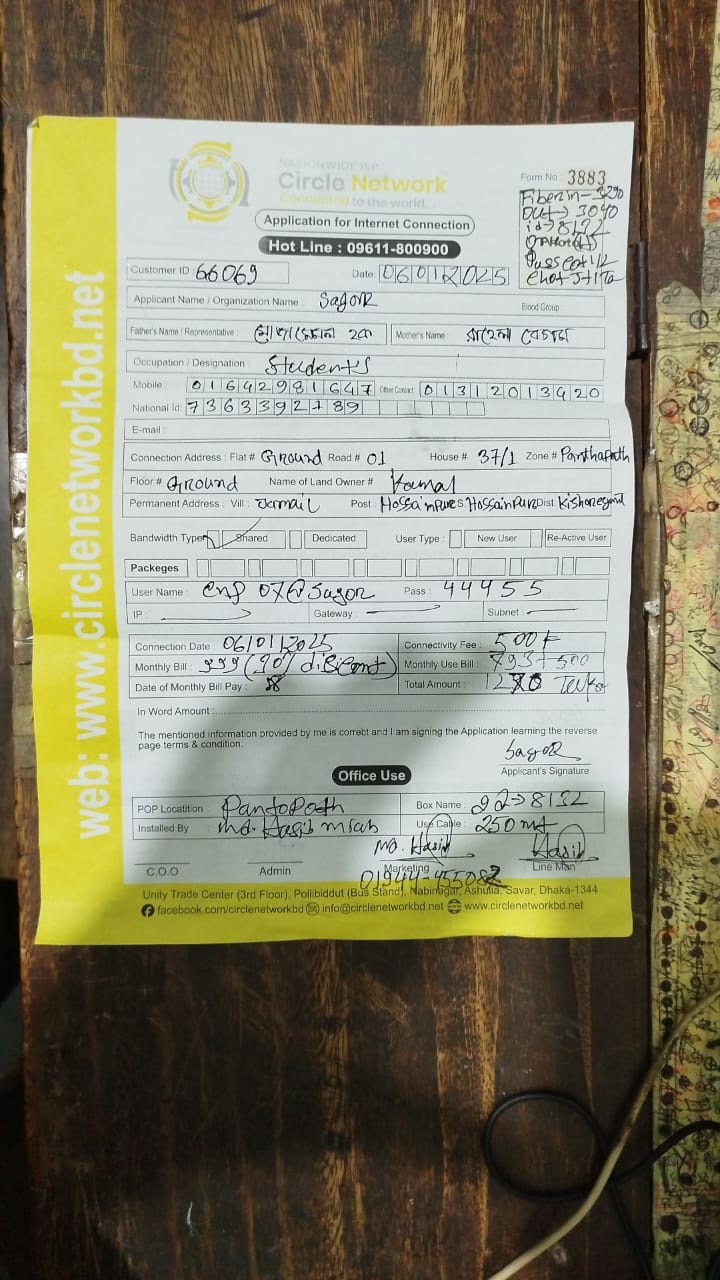 NATIONWIDE ISP
Circle Network
Connected to the world...
Application for Internet Connection
Hot Line : 09611-800900
Form No 3883
Out→ 3040
id→8132
Customer ID : 66069 Date: 06012025
Applicant Name / Organization Name : Sagor Blood Group :
Father's Name / Representative : হক Mother's Name : রাহেলা বেগম
Occupation / Designation : Student's
Mobile : 01642981647 Other Contact 01312013920
National Id: 7363392789
E-mail :
Connection Address : Flat # Ground Road # 01 House # 37/1 Zone # Panthapath
Floor # Ground Name of Land Owner # Kamal
Permanent Address : Vill : Jarmail Post : Hossainpur S: Hossainpur Dist: Kishoregonj
Bandwidth Type Shared Dedicated User Type : New User Re-Active User
Packeges
User Name : cnp 07@Sagor Pass : 44455
IP : Gateway : Subnet :
Connection Date : 06/01/2025 Connectivity Fee : 500
Monthly Bill : 999 Monthly Use Bill : 793+500
Date of Monthly Bill Pay : Total Amount : Taka
In Word Amount :
The mentioned information provided by me is correct and I am signing the Application learning the reverse
page terms & condition.
Sagor
Applicant's Signature
Office Use
POP Locatition : PantoPath Box Name : 22→8132
Installed By : Md. Hasib miah Use Cable : 250 mt
Md. Hasib Hasib
C.O.O Admin Marketing Line Man
01944-455082
Unity Trade Center (3rd Floor), Pollibiddut (Bus Stand), Nabinagar, Ashulia, Savar, Dhaka-1344
facebook.com/circlenetworkbd info@circlenetworkbd.net www.circlenetworkbd.net
web: www.circlenetworkbd.net